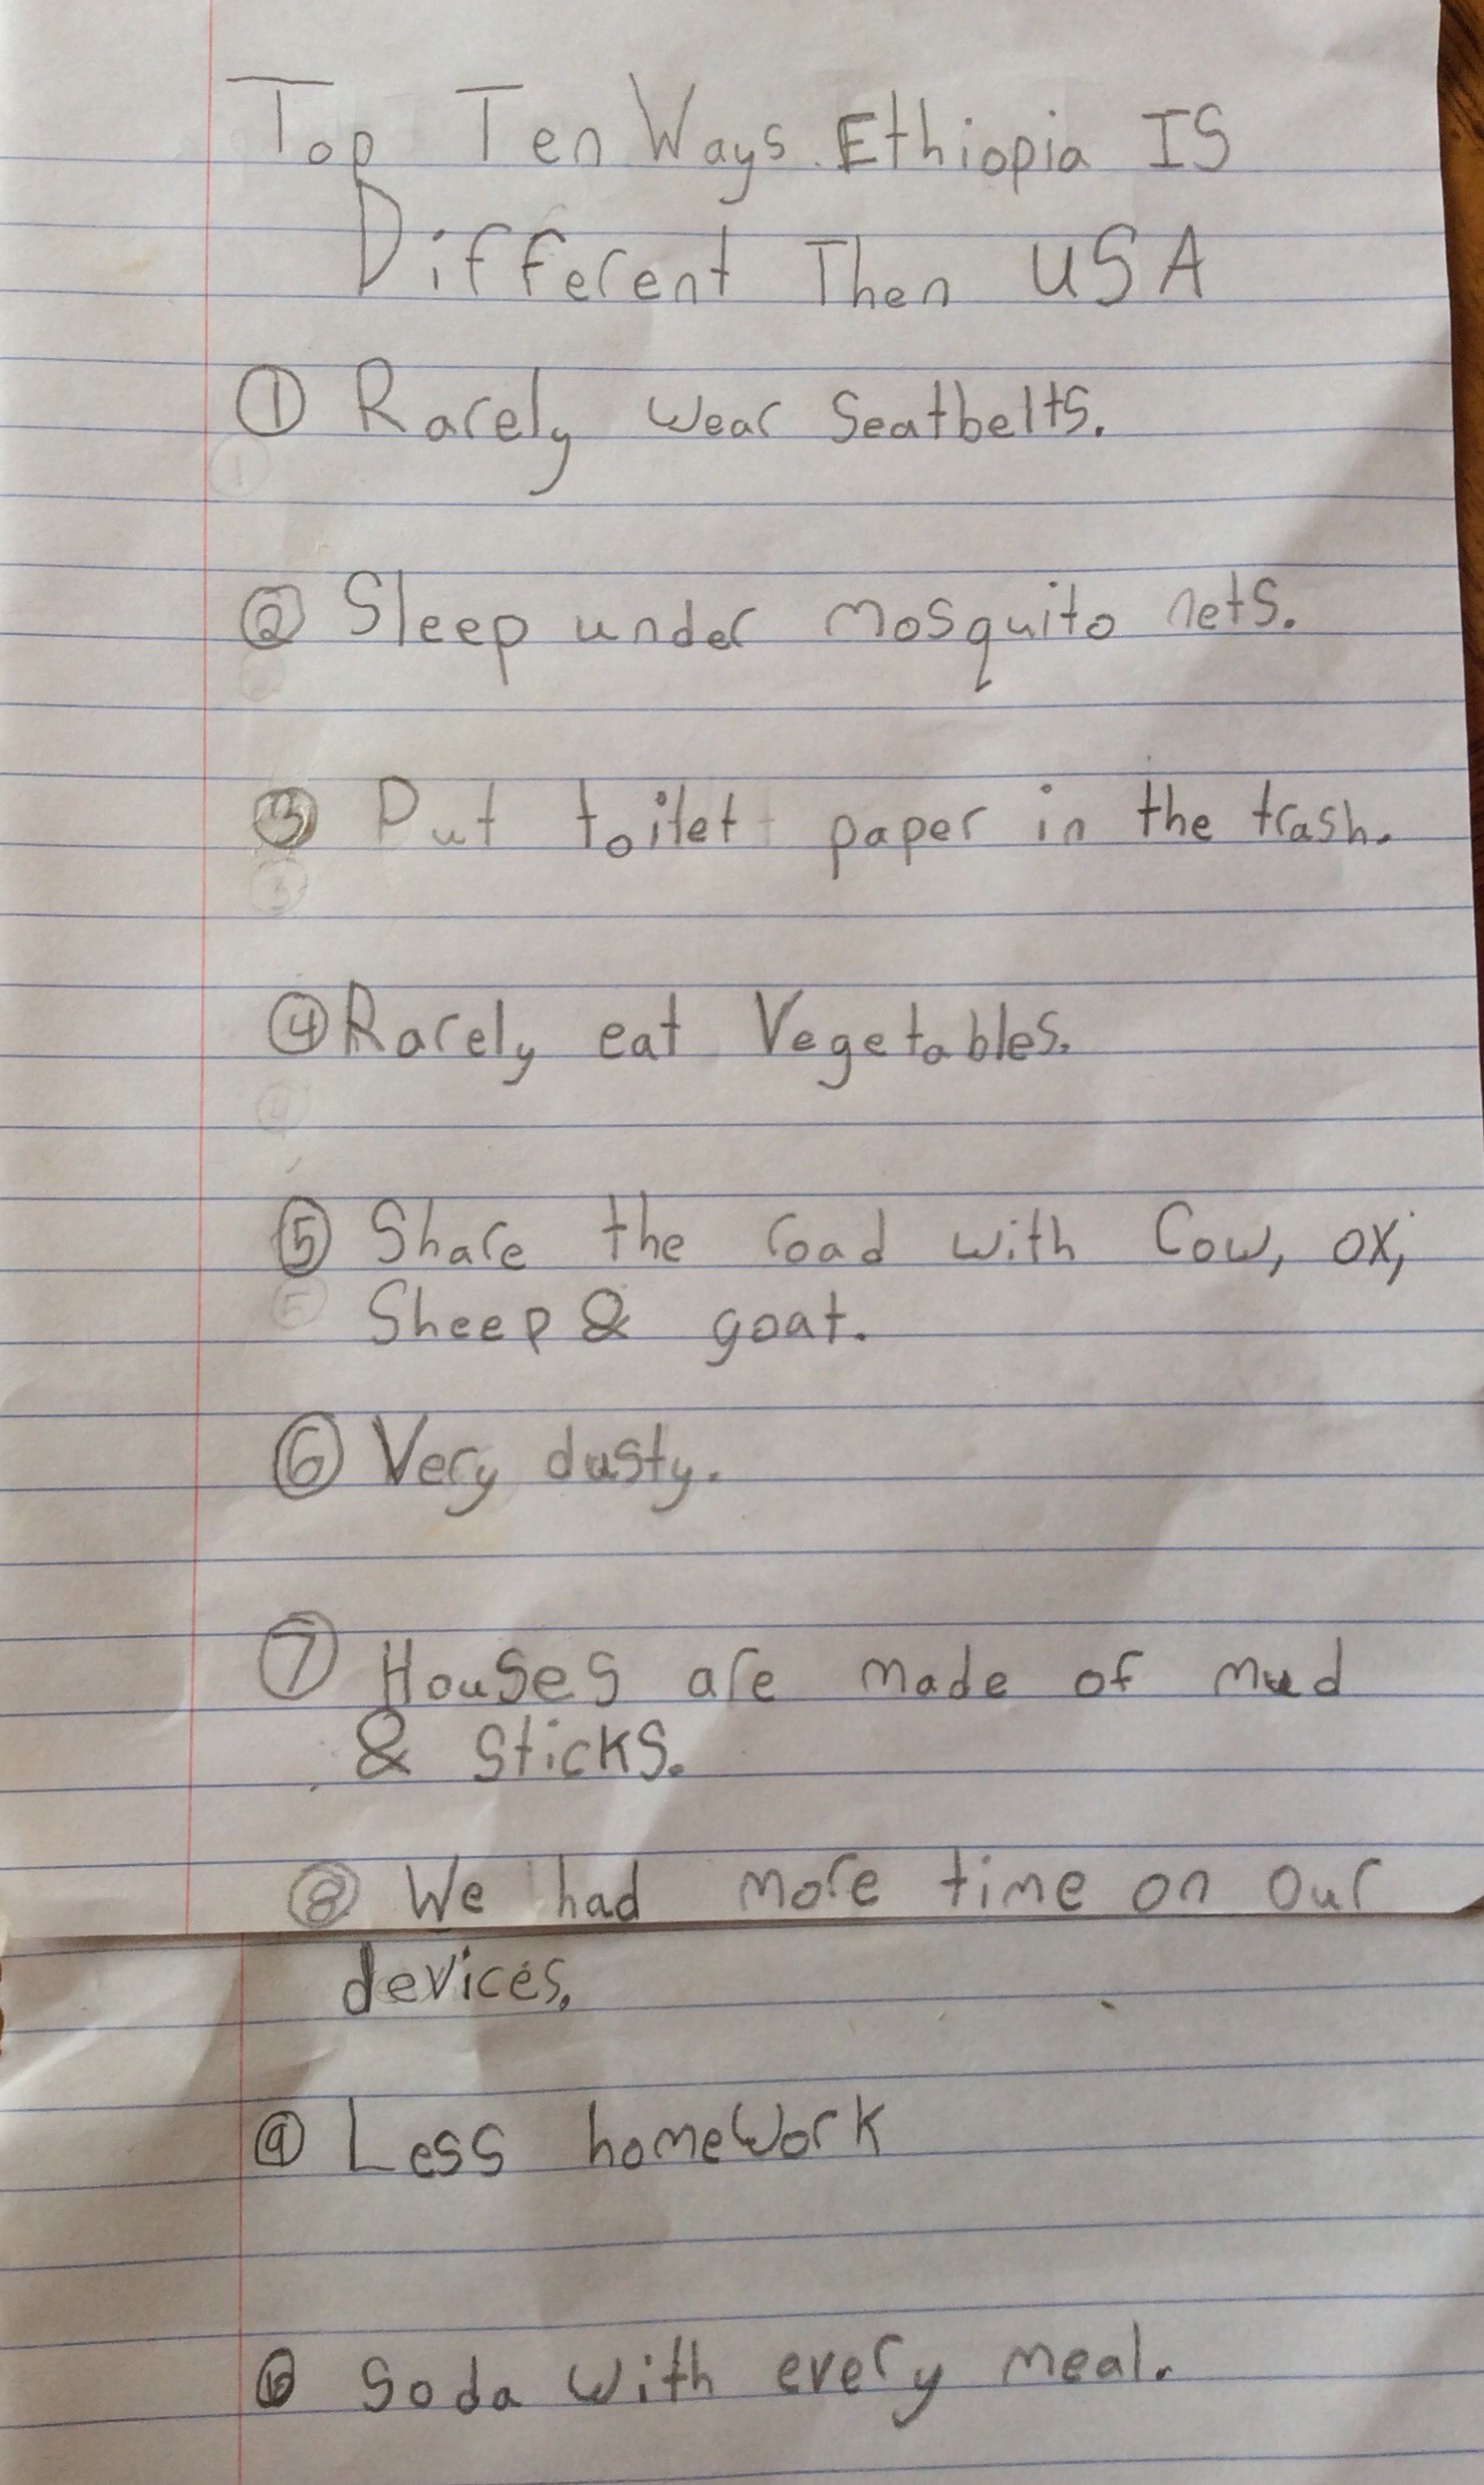 Top Ten Ways Ethiopia IS
Different Then USA
① Rarely wear Seatbelts.
② Sleep under mosquito nets.
③ Put toilet paper in the trash.
④ Rarely eat Vegetables.
⑤ Share the road with Cow, ox,
Sheep & goat.
⑥ Very dusty.
⑦ Houses are made of mud
& sticks.
⑧ We had more time on our
devices.
⑨ Less homework
⑩ Soda with every meal.